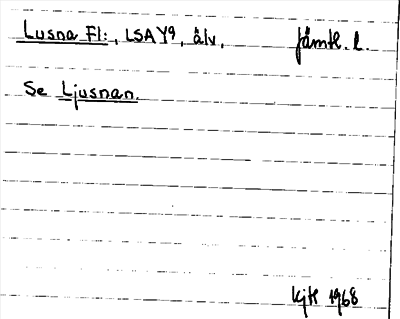 Lusna Fl:, LSA Y9, älv, Jämtl. l.
Se Ljusnan.
KjK 1968